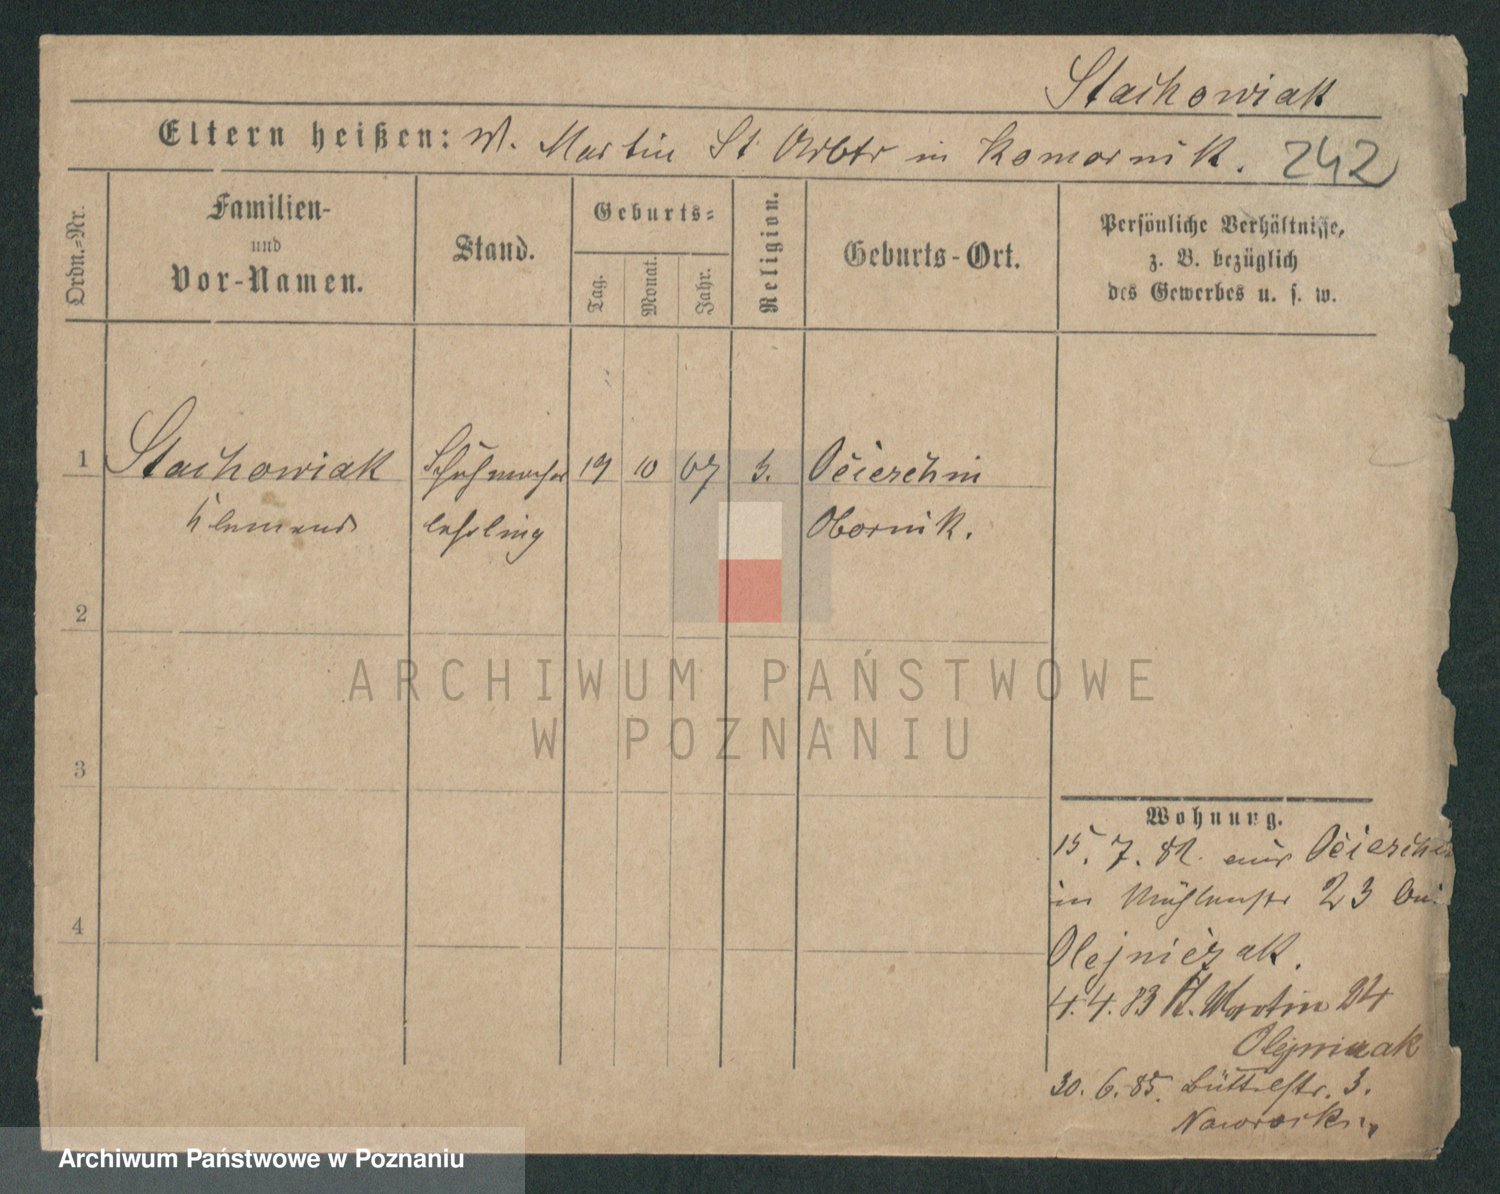 Stachowiak
Eltern heißen: Martin St Arbtr in Komornik. 242
Ordn.-Nr.
Familien-
und
Vor-Namen.
Stand.
Geburts-
Tag.
Monat.
Jahr.
Religion.
Geburts-Ort.
Persönliche Verhältnisse,
z. B. bezüglich
des Gewerbes u. s. w.
1 Stachowiak Schuhmacher 19 10 67 Ocierchin
Klemens lehrling Obornik.
2
3
4
Wohnung.
15. 7. 82. aus
in Mühlenstr 23 bei
Olejniczak.
4. 4. 83 St. Martin 24
Olejniczak
30. 6. 85. Büttelstr. 3.
Nawrocki
ARCHIWUM PAŃSTWOWE
W POZNANIU
Archiwum Państwowe w Poznaniu